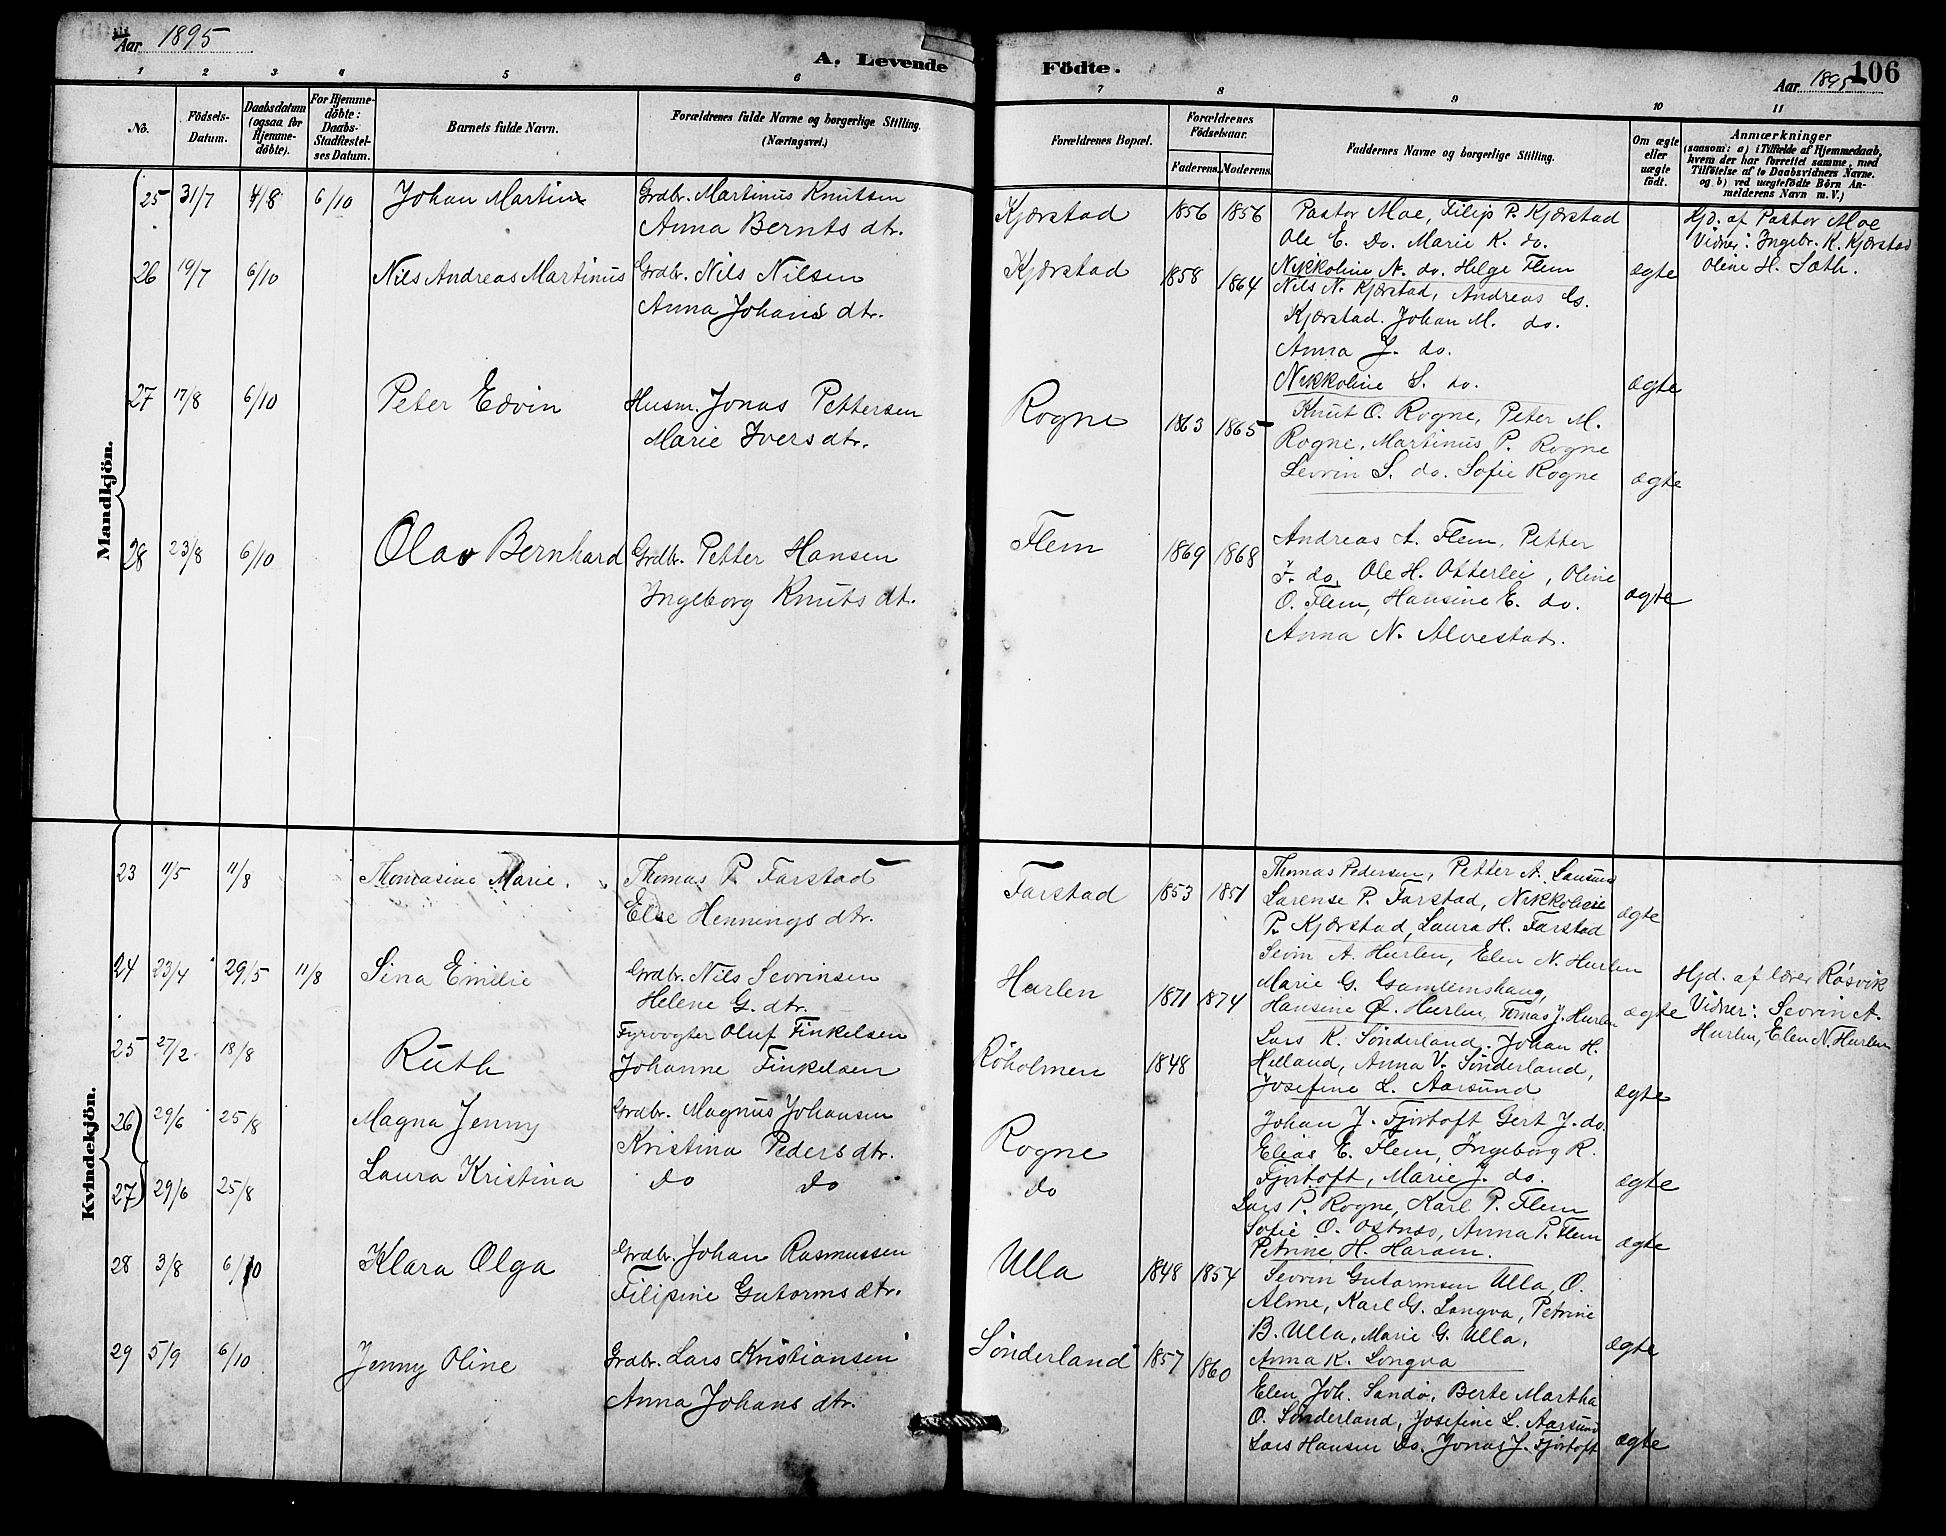 Aar 1895
A. Levende Födte.
Aar 1895 106
1 2 3 4 5 6 7 8 9 10 11
No.
Fødsels-Datum.
Daabsdatum (ogsaa for Hjemme-döbte).
For Hjemme-döbte: Daabs-Stadfæstel-ses Datum.
Barnets fulde Navn.
Forældrenes fulde Navne og borgerlige Stilling. (Næringsvei.)
Forældrenes Bopæl.
Forældrenes Födselsaar.
Faderens. Moderens.
Faddernes Navne og borgerlige Stilling.
Om ægte eller uægte födt.
Anmærkninger
(saasom: a) i Tilfælde af Hjemmedaab,
hvem der har forrettet samme, med
Tilföielse af to Daabsvidners Navne.
og b) ved uægtefödte Börn An-
melderens Navn m. V.)
Mandkjön.
25 31/7 4/8 6/10 Johan Martin Grdbr. Martinus Knutsen
Anna Bernts dtr.
Kjærstad 1856 1856 Pastor Moe, Filip P. Kjærstad
Ole E. Do. Marie K. do.
Nikkoline N. do. Helge Flem
ægte
Hjd. af Pastor Moe
Vidner: Ingebr. K. Kjærstad
Oline H. Sæth.
26 19/7 6/10 Nils Andreas Martinus Grdbr. Nils Nilsen
Anna Johans dtr.
Kjærstad 1858 1864 Nils N. Kjærstad, Andreas Es.
Kjærstad. Johan M. do.
Anna J. do.
Nikkoline S. do.
ægte
27 17/8 6/10 Peter Edvin Husm. Jonas Pettersen
Marie Ivers dtr.
Rogne 1863 1865 Knut O. Rogne, Peter M.
Rogne, Martinus P. Rogne
Sevrin S. do. Sofie Rogne
ægte
28 23/8 6/10 Olav Bernhard Grdbr. Petter Hansen
Ingeborg Knuts dt.
Flem 1869 1868 Andreas A. Flem, Petter
F. do, Ole H. Otterlei, Oline
O. Flem, Hansine E. do.
Anna N. Alvestad.
ægte
Kvindekjön.
23 11/5 11/8 Thomasine Marie. Thomas P. Farstad
Else Hennings dtr.
Farstad 1853 1851 Thomas Pedersen, Petter A. Lausund
Larense P. Farstad, Nikkoline
P. Kjærstad, Laura H. Farstad
ægte
24 23/4 29/5 11/8 Sina Emilie Grdbr. Nils Sevrinsen
Helene G. dtr.
Hurlen 1871 1874 Sevrin A. Hurlen, Elen N. Hurlen
Marie G. Gamlemshaug,
Hansine Ø. Hurlen, Tomas J. Hurlen
ægte
Hjd. af lærer Røsvik
Vidner: Sevrin A.
Hurlen, Elen N. Hurlen
25 27/2 18/8 Ruth Fyrvogter Oluf Finkelsen
Johanne Finkelsen
Røholmen 1848 Lars K. Sønderland. Johan H.
Helland, Anna V. Sønderland,
Josefine L. Aarsund
ægte
26 29/6 25/8 Magna Jenny Grdbr. Magnus Johansen
Kristina Peders dtr.
Rogne Johan J. Fjørtoft Gert J. do.
Elias E. Flem, Ingeborg R.
Fjørtoft, Marie J. do.
ægte
27 29/6 25/8 Laura Kristina do do
do Lars P. Rogne, Karl P. Flem
Sofie O. Østnes, Anna P. Flem
Petrine H. Haram.
ægte
28 3/8 6/10 Klara Olga Grdbr. Johan Rasmussen
Filipine Gutorms dtr.
Ulla 1848 1854 Sevrin Gutormsen Ulla, O.
Alme, Karl G. Longva, Petrine
B. Ulla, Marie G. Ulla,
Anna K. Longva
ægte
29 5/9 6/10 Jenny Oline Grdbr. Lars Kristiansen
Anna Johans dtr.
Sønderland 1857 1860 Elen Joh. Sandø, Berte Martha
O. Sønderland, Josefine L. Aarsund
Lars Hansen Do. Jonas J. Fjørtoft
ægte